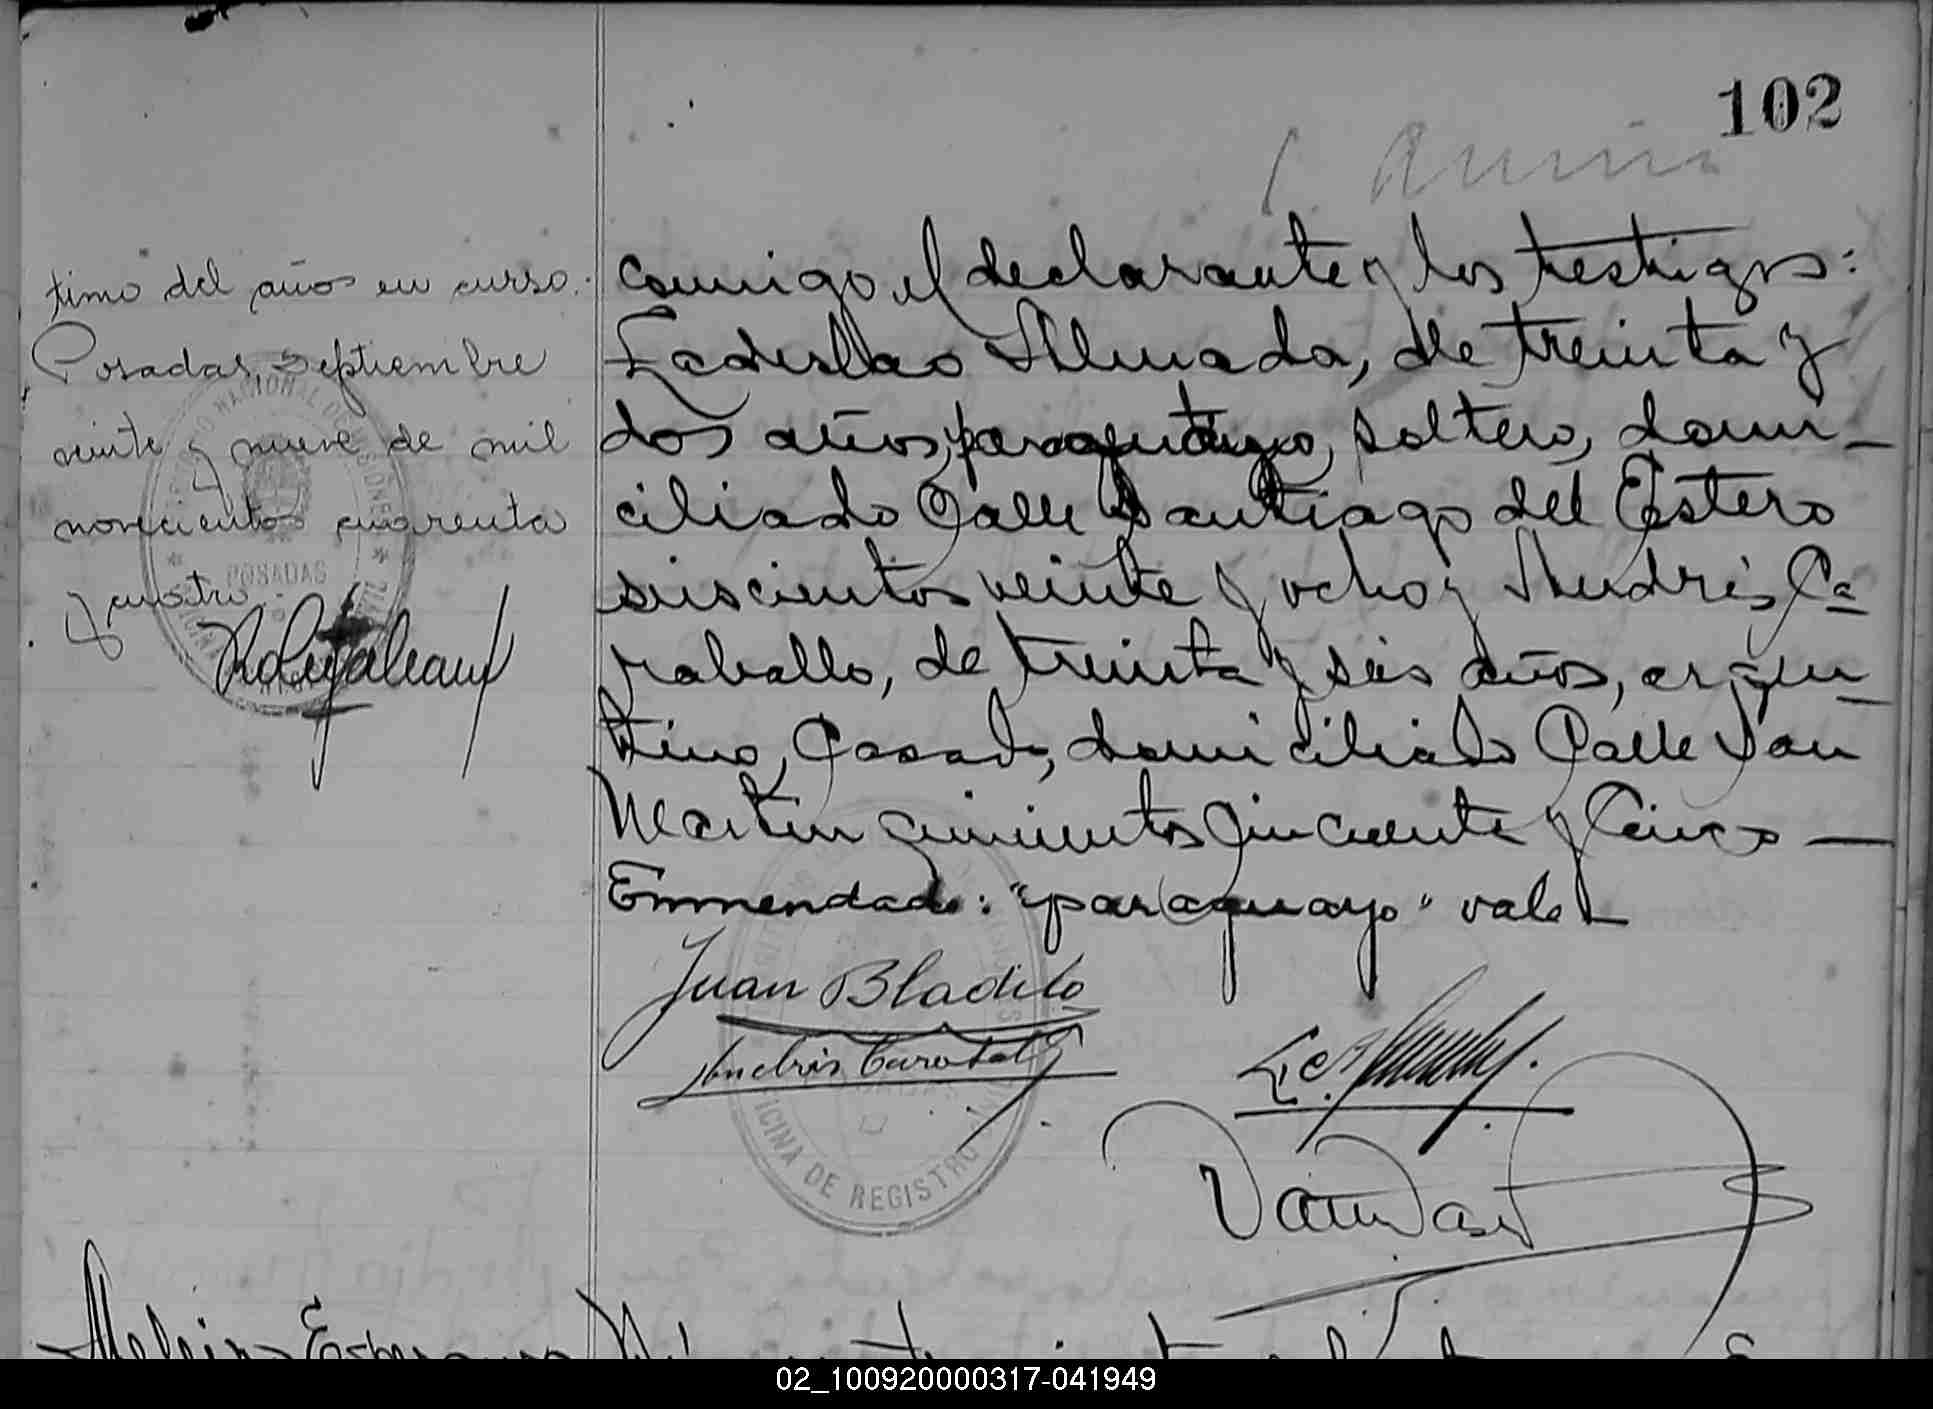 102
timo del años en curso.
Posadas, Septiembre
veinte y nueve de mil
novecientos cuarenta
y cuatro.
POSADAS
comigo, el declarante y los testigos:
Ladislao Almada, de treinta y
dos años, paraguayo, soltero, domi-
ciliado Calle Santiago del Estero
seiscientos veinte y ocho y Andrés Ca-
raballo, de treinta y seis años, argen-
tino, Casado, domiciliado Calle San
Martin quinientos cincuenta y cinco —
Enmendado: "paraguayo" vale —
Juan Bladilo
Andrés Caraballo
OFICINA DE REGISTRO
02_100920000317-041949